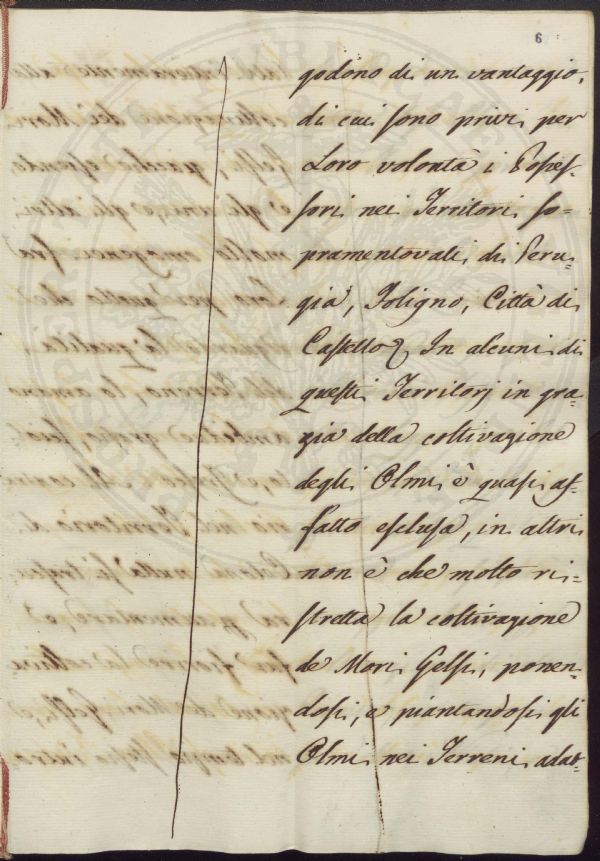 6
godono di un vantaggio,
di cui sono privi per
Loro volontà i Posses-
sori nei Territori so-
pramentovati di Peru-
gia, Foligno, Città di
Castello. In alcuni di
questi Territorj in gra-
zia della coltivazione
degli Olmi è quasi af-
fatto esclusa, in altri
non è che molto ri-
stretta la coltivazione
de Mori Gelsi, ponen-
dosi, e piantandosi gli
Olmi nei Terreni adat-